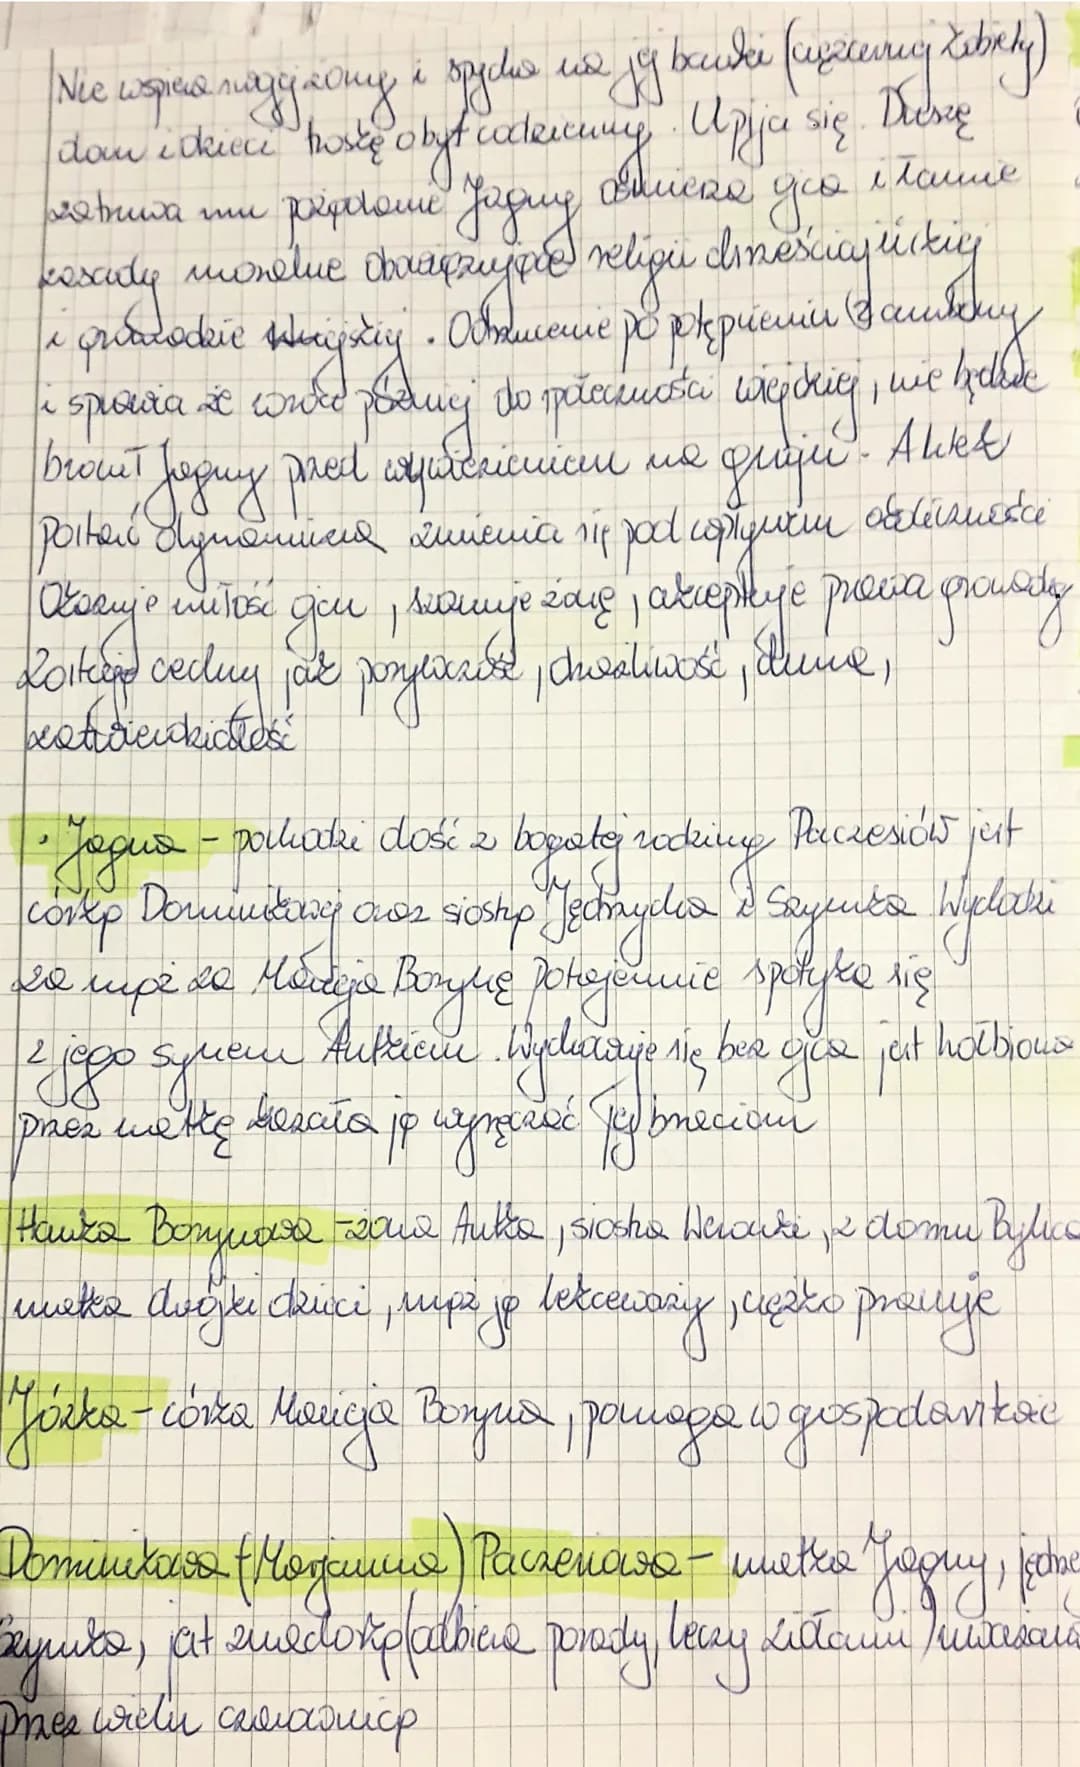 Nie wspiera swojej żony i spycha na jej barki (ciężarnej kobiety)
dom i dzieci troskę o byt codzienny. Upija się. Duszę
zatruwa mu pożądanie Jagny Ośmiesza ojca i łamie
zasady moralne obowiązujące religii chrześcijańskiej
i gromadzie wiejskiej. Odrzucenie po potępieniu z ambony
i sprawia że wróci później do społeczności wiejskiej, nie będzie
bronił Jagny przed wywiezieniem na gnoju. Antek
postać dynamiczna zmienia się pod wpływem okoliczności
Okazuje miłość ojcu, szanuje żonę, akceptuje prawa gromady
cechy jak porywczość, drażliwość, duma,
zatwardziałość
• Jagna - pochodzi dość z bogatej rodziny Paczesiów jest
córką Dominikowej oraz siostrą Jędrzycha i Szymka Wychodzi
za mąż za Macieja Borynę potajemnie spotyka się
z jego synem Antkiem. Wychowuje się bez ojca jest hołbiona
przez matkę kazała ją wyręczać jej braciom
Hanka Borynowa - żona Antka, siostra Weronki, z domu Bylica
matka dwójki dzieci, mąż ją lekceważy, ciężko pracuje
Józka - córka Macieja Boryna, pomaga w gospodarstwie
Dominikowa (Marjanna) Paczesiowa - matka Jagny, jędrze
Szymka, jest znachorką (odbiera porody, leczy ziołami) uważana
przez wielu czarownicą